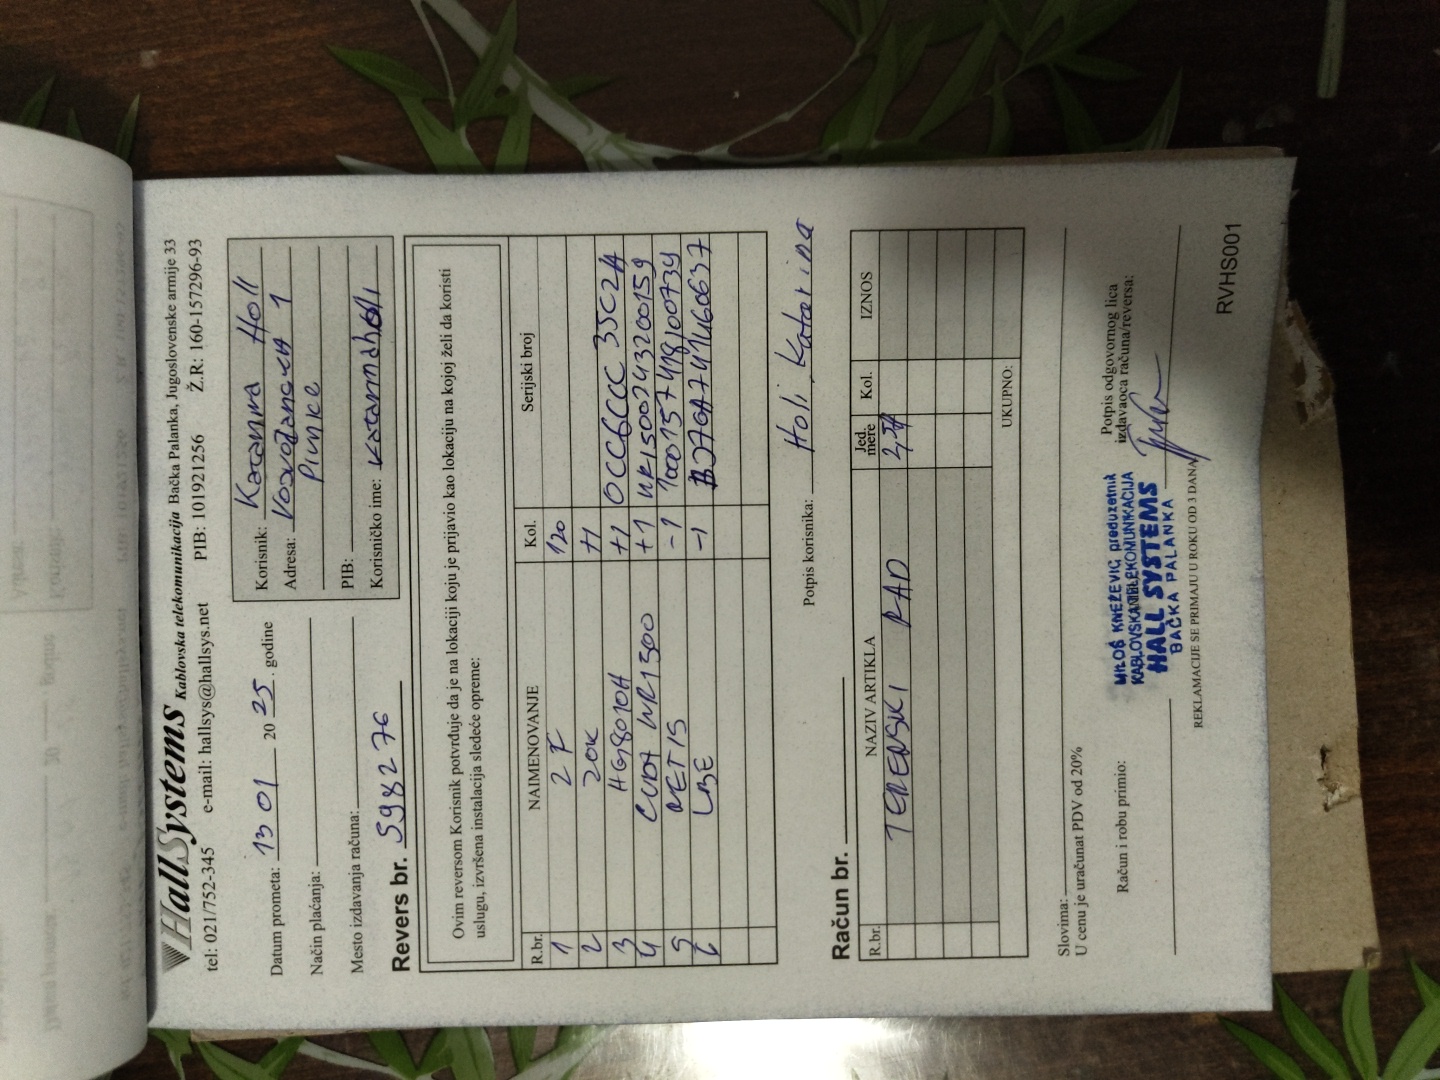 HallSystems Kablovska telekomunikacija Bačka Palanka, Jugoslovenske armije 33
tel: 021/752-345 e-mail: hallsys@hallsys.net PIB: 101921256 Ž.R: 160-157296-93
Datum prometa: 13 01 20 25. godine
Način plaćanja:
Mesto izdavanja računa:
Korisnik: Katarina Holl
Adresa: 1
Pivnice
PIB:
Korisničko ime: katarinaholi
Revers br. 598276
Ovim reversom Korisnik potvrđuje da je na lokaciji koju je prijavio kao lokaciju na kojoj želi da koristi
uslugu, izvršena instalacija sledeće opreme:
R.br. NAIMENOVANJE Kol. Serijski broj
1 2F 120
2 ZOK +1
3 HG8010H +1 OCCC6CCC 35C2A
4 CUDY WR1300 +1 WR1500243200159
5 NET15 -1 1000157418100734
6 LBE -1
Potpis korisnika: Holi Katarina
Račun br.
R.br. NAZIV ARTIKLA Jed. mere Kol. IZNOS
TERENSKI RAD
UKUPNO:
Slovima:
U cenu je uračunat PDV od 20%
Račun i robu primio:
Potpis odgovornog lica
izdavaoca računa/reversa:
MILOŠ KNEŽEVIĆ preduzetnik
KABLOVSKA TELEKOMUNIKACIJA
HALL SYSTEMS
BAČKA PALANKA
REKLAMACIJE SE PRIMAJU U ROKU OD 3 DANA
RVHS001